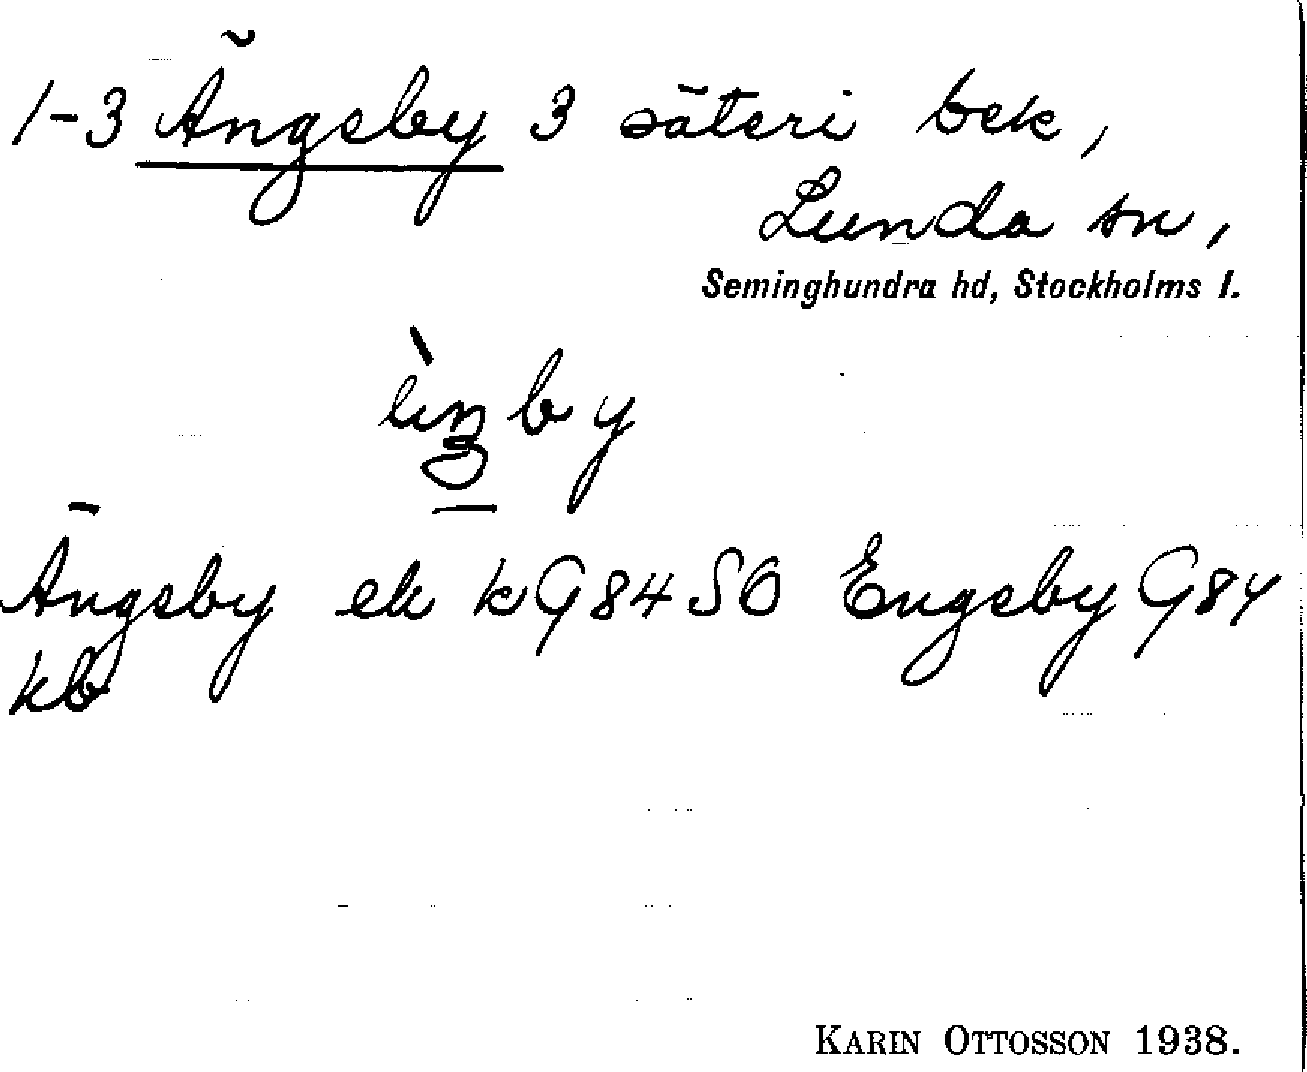 1-3 Ängsby 3 säteri bek,
Lunda sn,
Seminghundra hd, Stockholms l.
Ängsby ek k G84 SO Engsby G84
kb
KARIN OTTOSSON 1938.